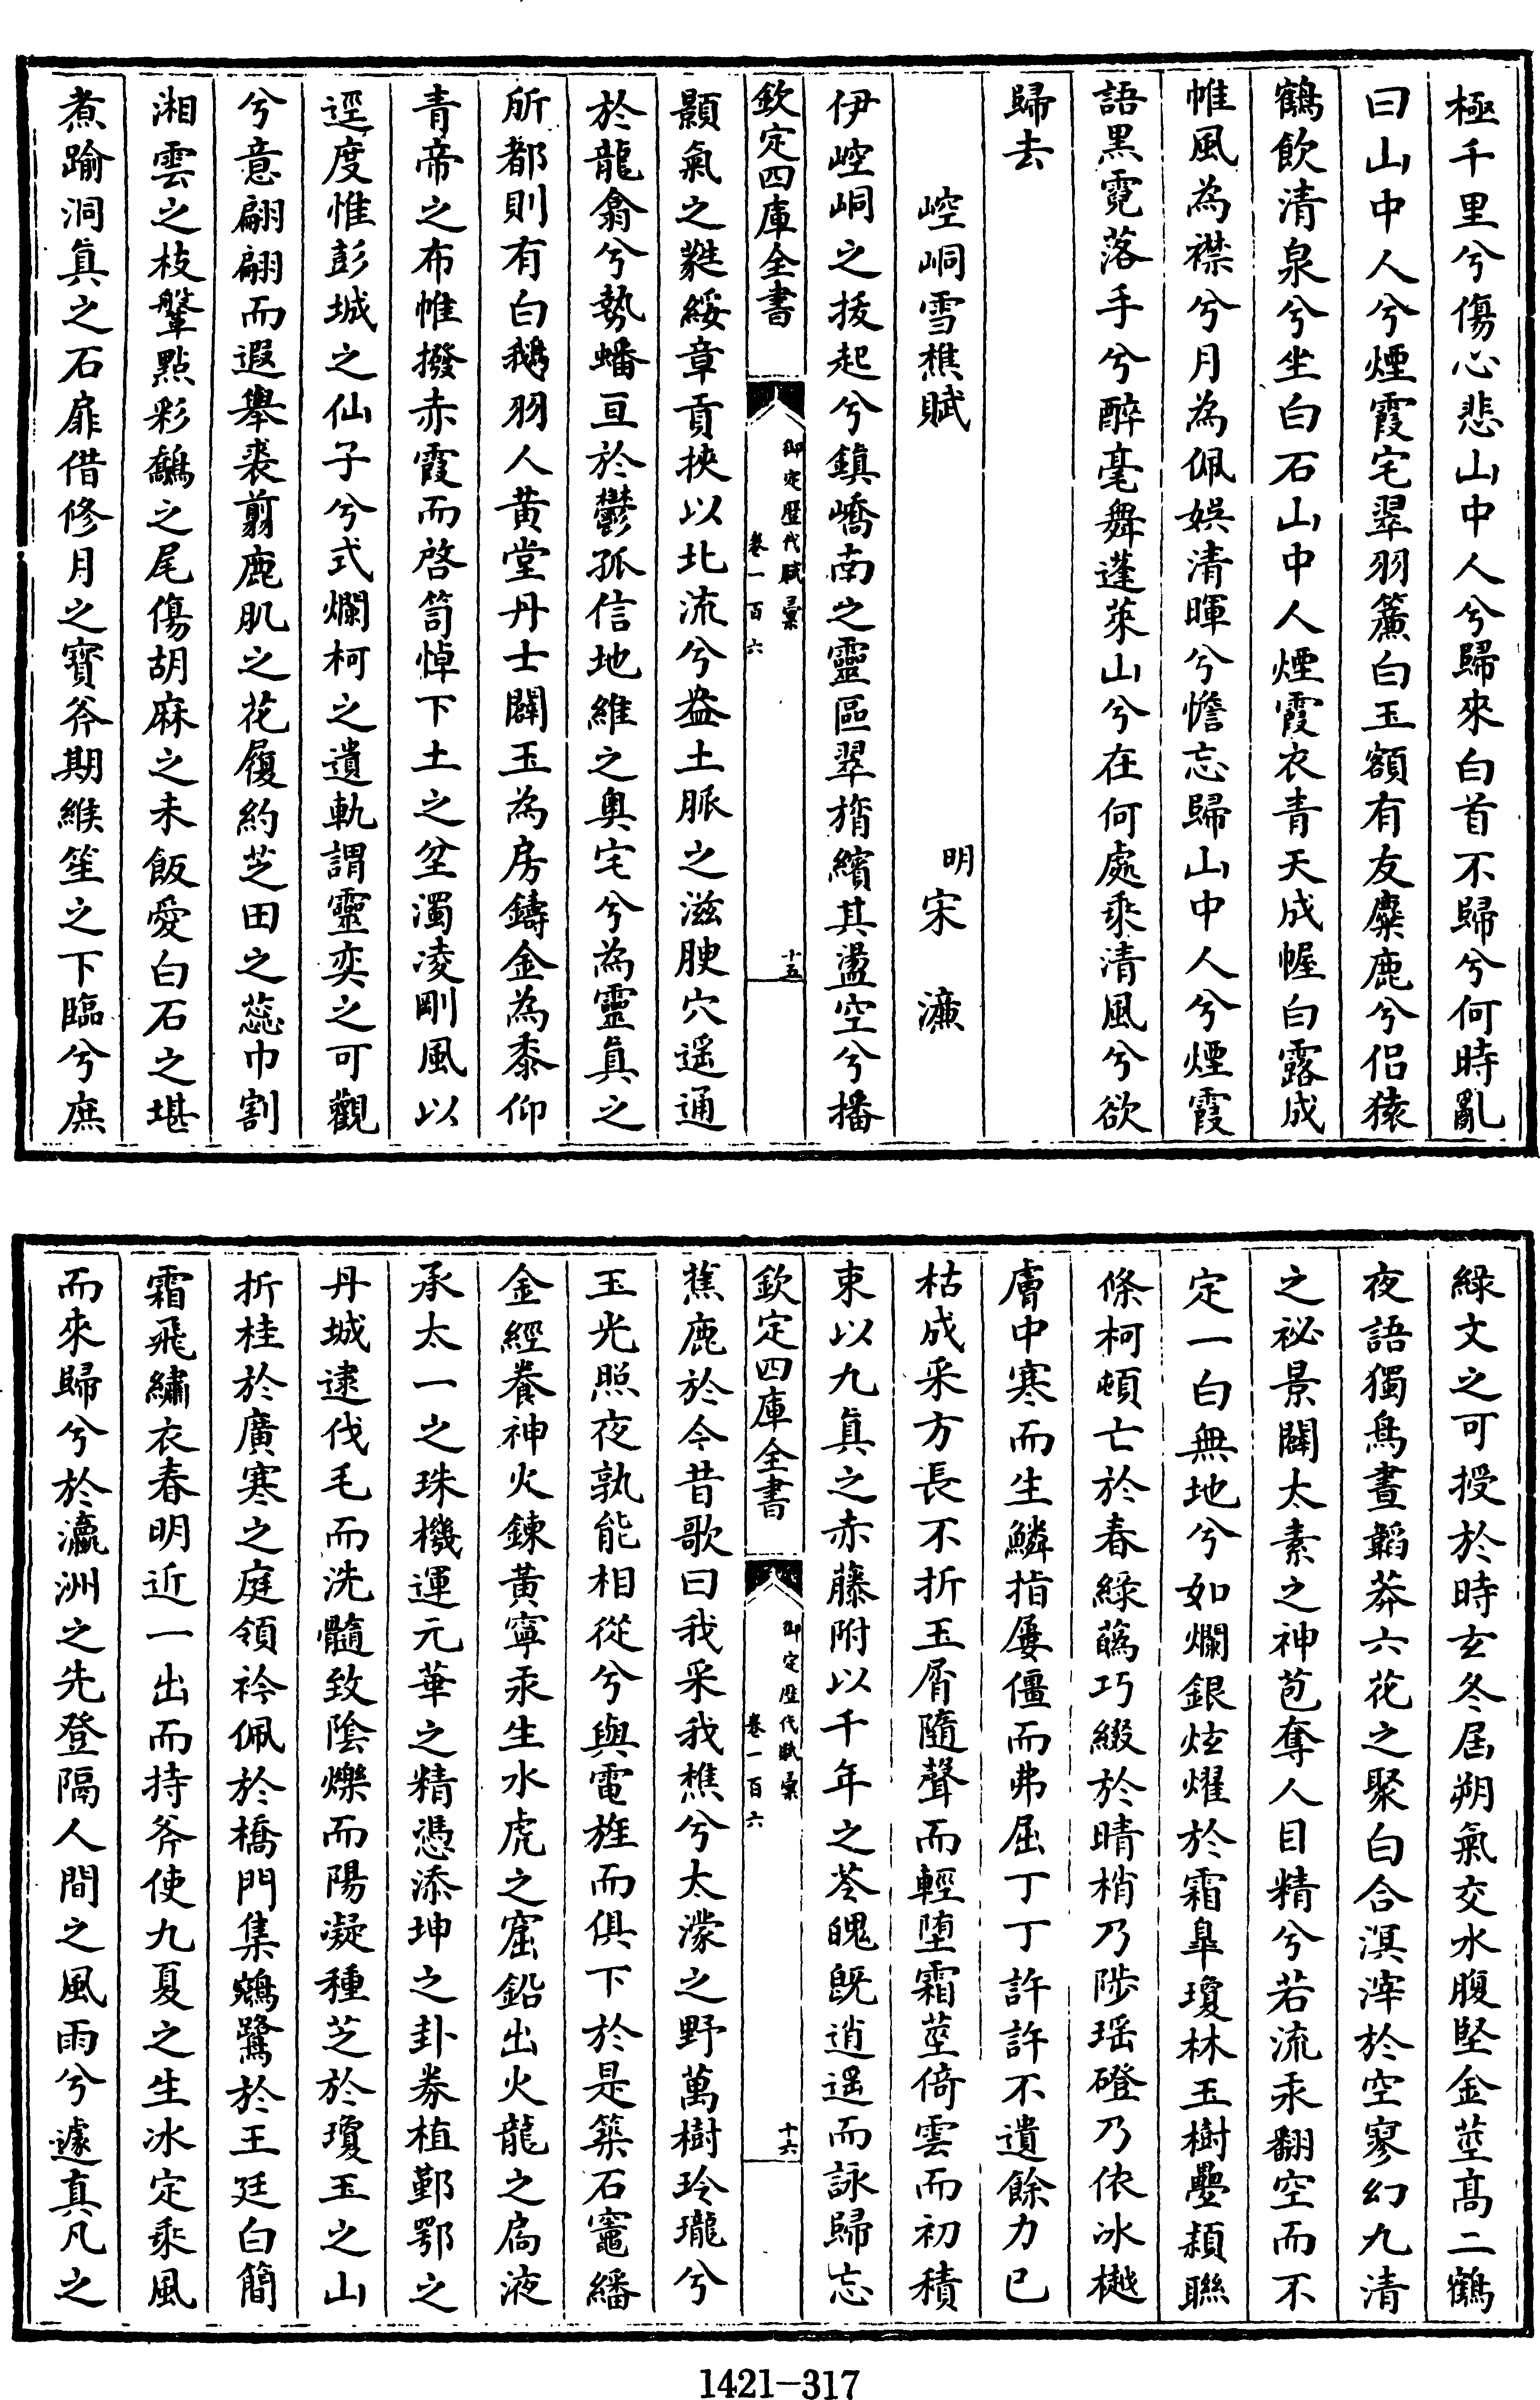 極千里兮傷心悲山中人兮歸來白首不歸兮何時亂
曰山中人兮煙霞宅翠羽簾白玉額有友麋鹿兮侣猿
鶴飲清泉兮坐白石山中人煙霞衣青天成幄白露成
帷風為襟兮月為佩娛清暉兮憺忘歸山中人兮煙霞
語黑霓落手兮醉毫舞蓬萊山兮在何處乘清風兮欲
歸去
崆峒雪樵賦
明宋濂
伊崆峒之拔起兮鎮嶠南之靈區翠旓繽其盪空兮播
欽定四庫全書
御定歷代賦彙
卷一百六
十五
顥氣之蕤綏章貢挾以北流兮盎土脈之滋腴穴遥通
於龍翕兮勢蟠亘於鬱孤信地維之奧宅兮為靈真之
所都則有白鵝羽人黄堂丹士闢玉為房鑄金為黍仰
青帝之布帷撥赤霞而啓笥悼下土之坌濁凌剛風以
逕度惟彭城之仙子兮式爛柯之遺軌謂靈奕之可觀
兮意翩翩而遐舉裘翦鹿肌之花履約芝田之蕊巾割
湘雲之枝鞶點彩鷸之尾傷胡麻之未飯愛白石之堪
煮踰洞真之石扉借修月之寶斧期緱笙之下臨兮庶
綠文之可授於時玄冬居朔氣交水腹堅金莖高二鶴
夜語獨烏晝韜莽六花之聚白合溟涬於空寥幻九清
之祕景闢太素之神苞奪人目精兮若流汞翻空而不
定一白無地兮如爛銀炫燿於霜臯瓊林玉樹壘纇聯
條柯頓亡於春綠蘤巧綴於晴梢乃陟瑶磴乃依冰樾
膚中寒而生鱗指屢僵而弗屈丁丁許許不遺餘力已
枯成采方長不折玉屑隨聲而輕墮霜莖倚雲而初積
束以九真之赤藤附以千年之苓魄既逍遥而詠歸忘
欽定四庫全書
御定歷代賦彙
卷一百六
十六
蕉鹿於今昔歌曰我采我樵兮太濛之野萬樹玲瓏兮
玉光照夜孰能相從兮與電旌而俱下於是築石竈繙
金經養神火鍊黃寧汞生水虎之窟鉛出火龍之扃液
承太一之珠機運元華之精憑添坤之卦券植鄞鄂之
丹城逮伐毛而洗髓致陰爍而陽凝種芝於瓊玉之山
折桂於廣寒之庭領衿佩於橋門集鵷鷺於王廷白簡
霜飛繡衣春明近一出而持斧使九夏之生冰定乘風
而來歸兮於瀛洲之先登隔人間之風雨兮遽真凡之
1421-317